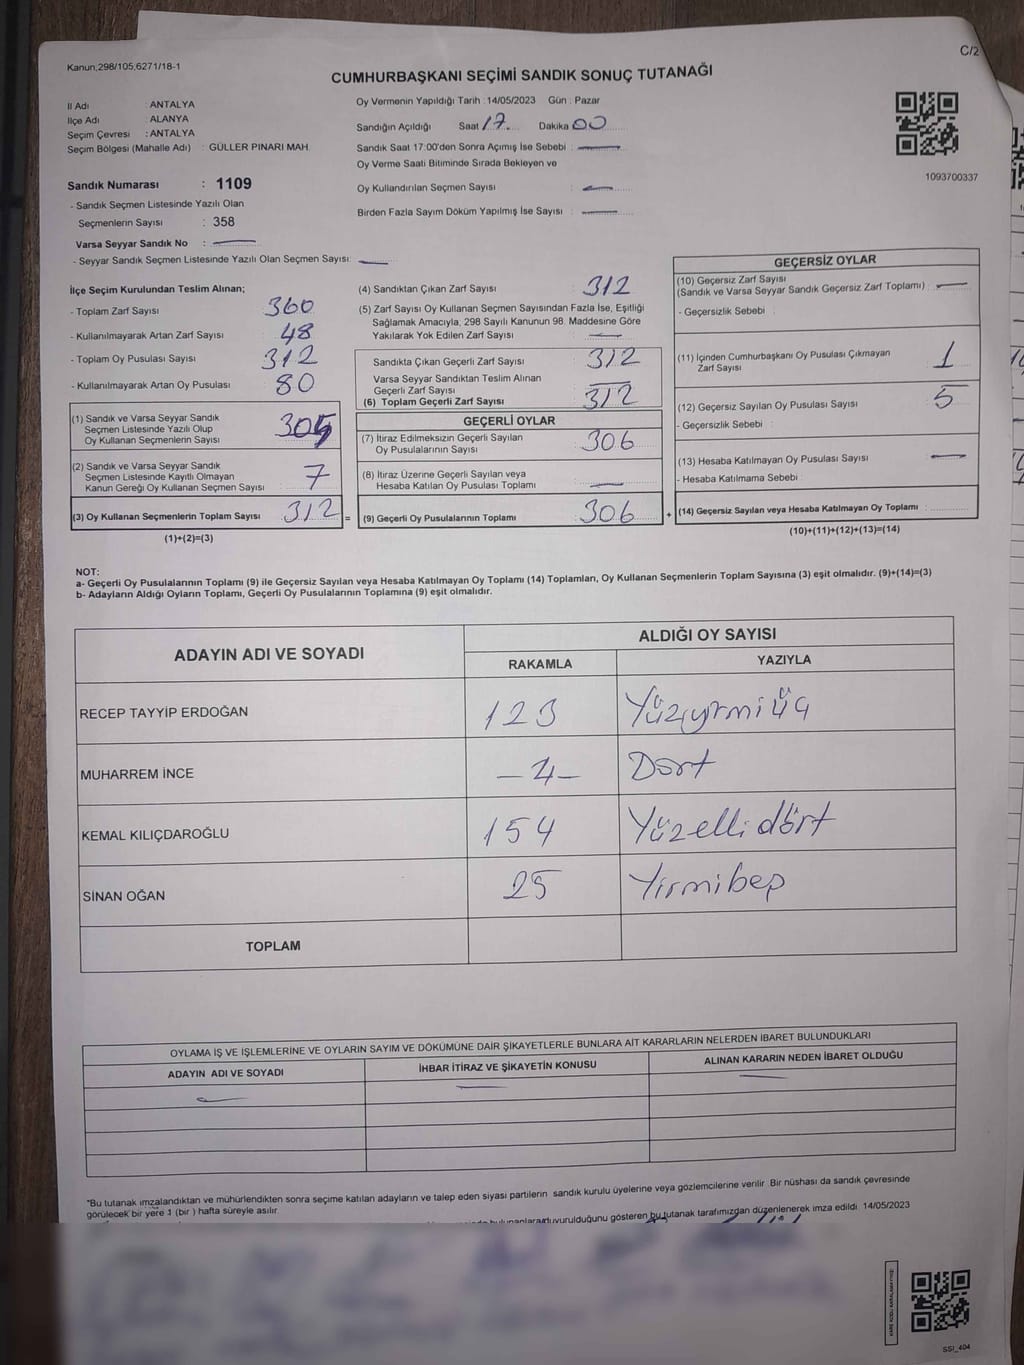 C/2
Kanun;298/105,6271/18-1
CUMHURBAŞKANI SEÇİMİ SANDIK SONUÇ TUTANAĞI
İl Adı : ANTALYA
İlçe Adı ALANYA
Seçim Çevresi : ANTALYA
Seçim Bölgesi (Mahalle Adı) : GÜLLER PINARI MAH.
Sandık Numarası : 1109
- Sandık Seçmen Listesinde Yazılı Olan
Seçmenlerin Sayısı : 358
Varsa Seyyar Sandık No :
- Seyyar Sandık Seçmen Listesinde Yazılı Olan Seçmen Sayısı:
Oy Vermenin Yapıldığı Tarih : 14/05/2023 Gün : Pazar
Sandığın Açıldığı Saat 17 Dakika 00
Sandık Saat 17:00'den Sonra Açımış İse Sebebi :
Oy Verme Saati Bitiminde Sırada Bekleyen ve
Oy Kullandırılan Seçmen Sayısı :
Birden Fazla Sayım Döküm Yapılmış İse Sayısı :
1093700337
İlçe Seçim Kurulundan Teslim Alınan;
- Toplam Zarf Sayısı 360
- Kullanılmayarak Artan Zarf Sayısı 48
- Toplam Oy Pusulası Sayısı 312
- Kullanılmayarak Artan Oy Pusulası 80
(1) Sandık ve Varsa Seyyar Sandık
Seçmen Listesinde Yazılı Olup
Oy Kullanan Seçmenlerin Sayısı 305
(2) Sandık ve Varsa Seyyar Sandık
Seçmen Listesinde Kayıtlı Olmayan
Kanun Gereği Oy Kullanan Seçmen Sayısı 7
(3) Oy Kullanan Seçmenlerin Toplam Sayısı 312 =
(1)+(2)=(3)
(4) Sandıktan Çıkan Zarf Sayısı 312
(5) Zarf Sayısı Oy Kullanan Seçmen Sayısından Fazla İse, Eşitliği
Sağlamak Amacıyla, 298 Sayılı Kanunun 98. Maddesine Göre
Yakılarak Yok Edilen Zarf Sayısı
Sandıkta Çıkan Geçerli Zarf Sayısı 312
Varsa Seyyar Sandıktan Teslim Alınan
Geçerli Zarf Sayısı
(6) Toplam Geçerli Zarf Sayısı 312
GEÇERLİ OYLAR
(7) İtiraz Edilmeksizin Geçerli Sayılan
Oy Pusulalarının Sayısı 306
(8) İtiraz Üzerine Geçerli Sayılan veya
Hesaba Katılan Oy Pusulası Toplamı
(9) Geçerli Oy Pusulalarının Toplamı 306 +
GEÇERSİZ OYLAR
(10) Geçersiz Zarf Sayısı
(Sandık ve Varsa Seyyar Sandık Geçersiz Zarf Toplamı) :
- Geçersizlik Sebebi :
(11) İçinden Cumhurbaşkanı Oy Pusulası Çıkmayan
Zarf Sayısı 1
(12) Geçersiz Sayılan Oy Pusulası Sayısı 5
- Geçersizlik Sebebi :
(13) Hesaba Katılmayan Oy Pusulası Sayısı
- Hesaba Katılmama Sebebi
(14) Geçersiz Sayılan veya Hesaba Katılmayan Oy Toplamı :
(10)+(11)+(12)+(13)=(14)
NOT:
a- Geçerli Oy Pusulalarının Toplamı (9) ile Geçersiz Sayılan veya Hesaba Katılmayan Oy Toplamı (14) Toplamları, Oy Kullanan Seçmenlerin Toplam Sayısına (3) eşit olmalıdır. (9)+(14)=(3)
b- Adayların Aldığı Oyların Toplamı, Geçerli Oy Pusulalarının Toplamına (9) eşit olmalıdır.
ADAYIN ADI VE SOYADI ALDIĞI OY SAYISI
RAKAMLA YAZIYLA
RECEP TAYYİP ERDOĞAN 123 Yüzyirmi üç
MUHARREM İNCE -4- Dört
KEMAL KILIÇDAROĞLU 154 Yüzelli dört
SİNAN OĞAN 25 Yirmibeş
TOPLAM
OYLAMA İŞ VE İŞLEMLERİNE VE OYLARIN SAYIM VE DÖKÜMÜNE DAİR ŞİKAYETLERLE BUNLARA AİT KARARLARIN NELERDEN İBARET BULUNDUKLARI
ADAYIN ADI VE SOYADI İHBAR İTİRAZ VE ŞİKAYETİN KONUSU ALINAN KARARIN NEDEN İBARET OLDUĞU
"Bu tutanak imzalandıktan ve mühürlendikten sonra seçime katılan adayların ve talep eden siyasi partilerin sandık kurulu üyelerine veya gözlemcilerine verilir. Bir nüshası da sandık çevresinde
görülecek bir yere 1 (bir) hafta süreyle asılır.
duyurulduğunu gösteren bu tutanak tarafımızdan düzenlenerek imza edildi. 14/05/2023
KARE KODU KARALAMAYINIZ!
SSI_404